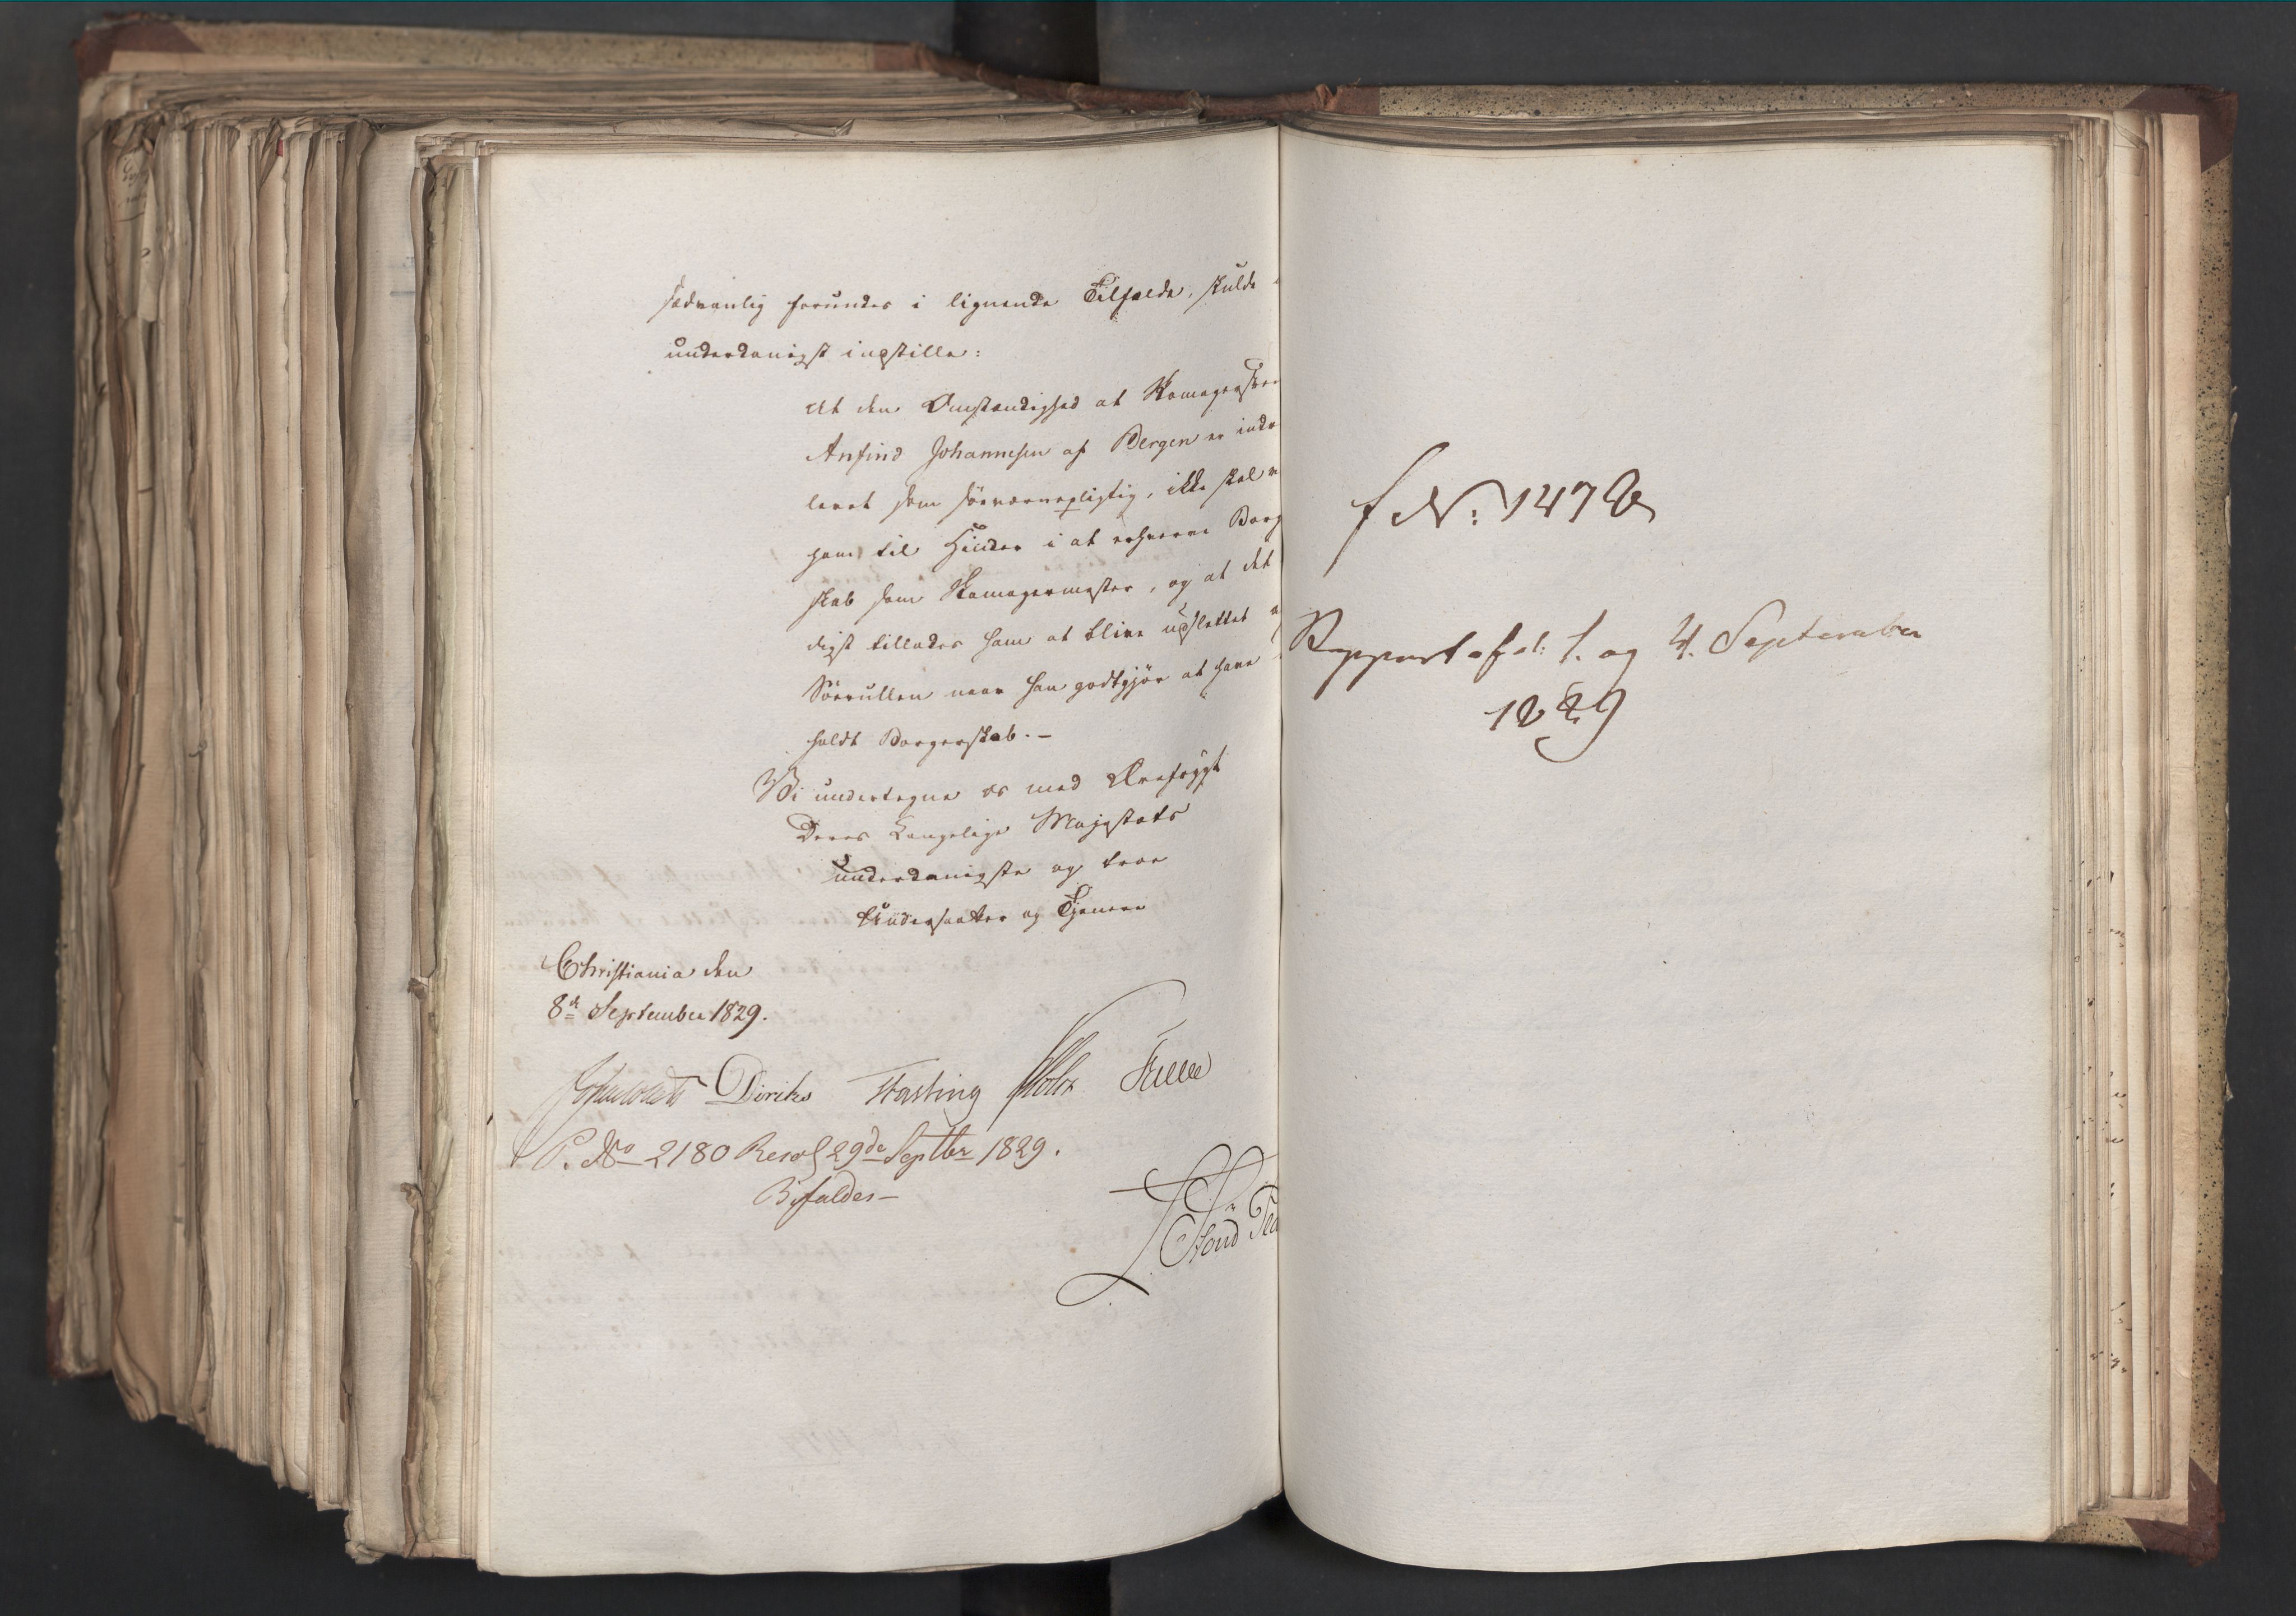 sædvanlig forundes i lignende Tilfælde, skulde
underdanigst indstille:
At den Omstændighed at Skomagersvend
Anfind Johannesen af Bergen er indrul
leret som søeværnepligtig, ikke skal være
ham til Hinder i at erhverve Borger
skab som Skomagermester, og at det
digst tillades ham at blive udslettet
Sørrullen naar han godtgjør at have
holdt Borgerskab. —
Vi undertegne os med Ærefrygt
Deres Kongelige Majestæts
underdanigste og troe
Undersaatter og Tjenere
Christiania den
8de September 1829.
Diriks Fasting Holst
P. No 2180 Resol 29de Septbr 1829.
Bifaldes —
f N: 1478
Rapport af d: 1. og 4. September
1829